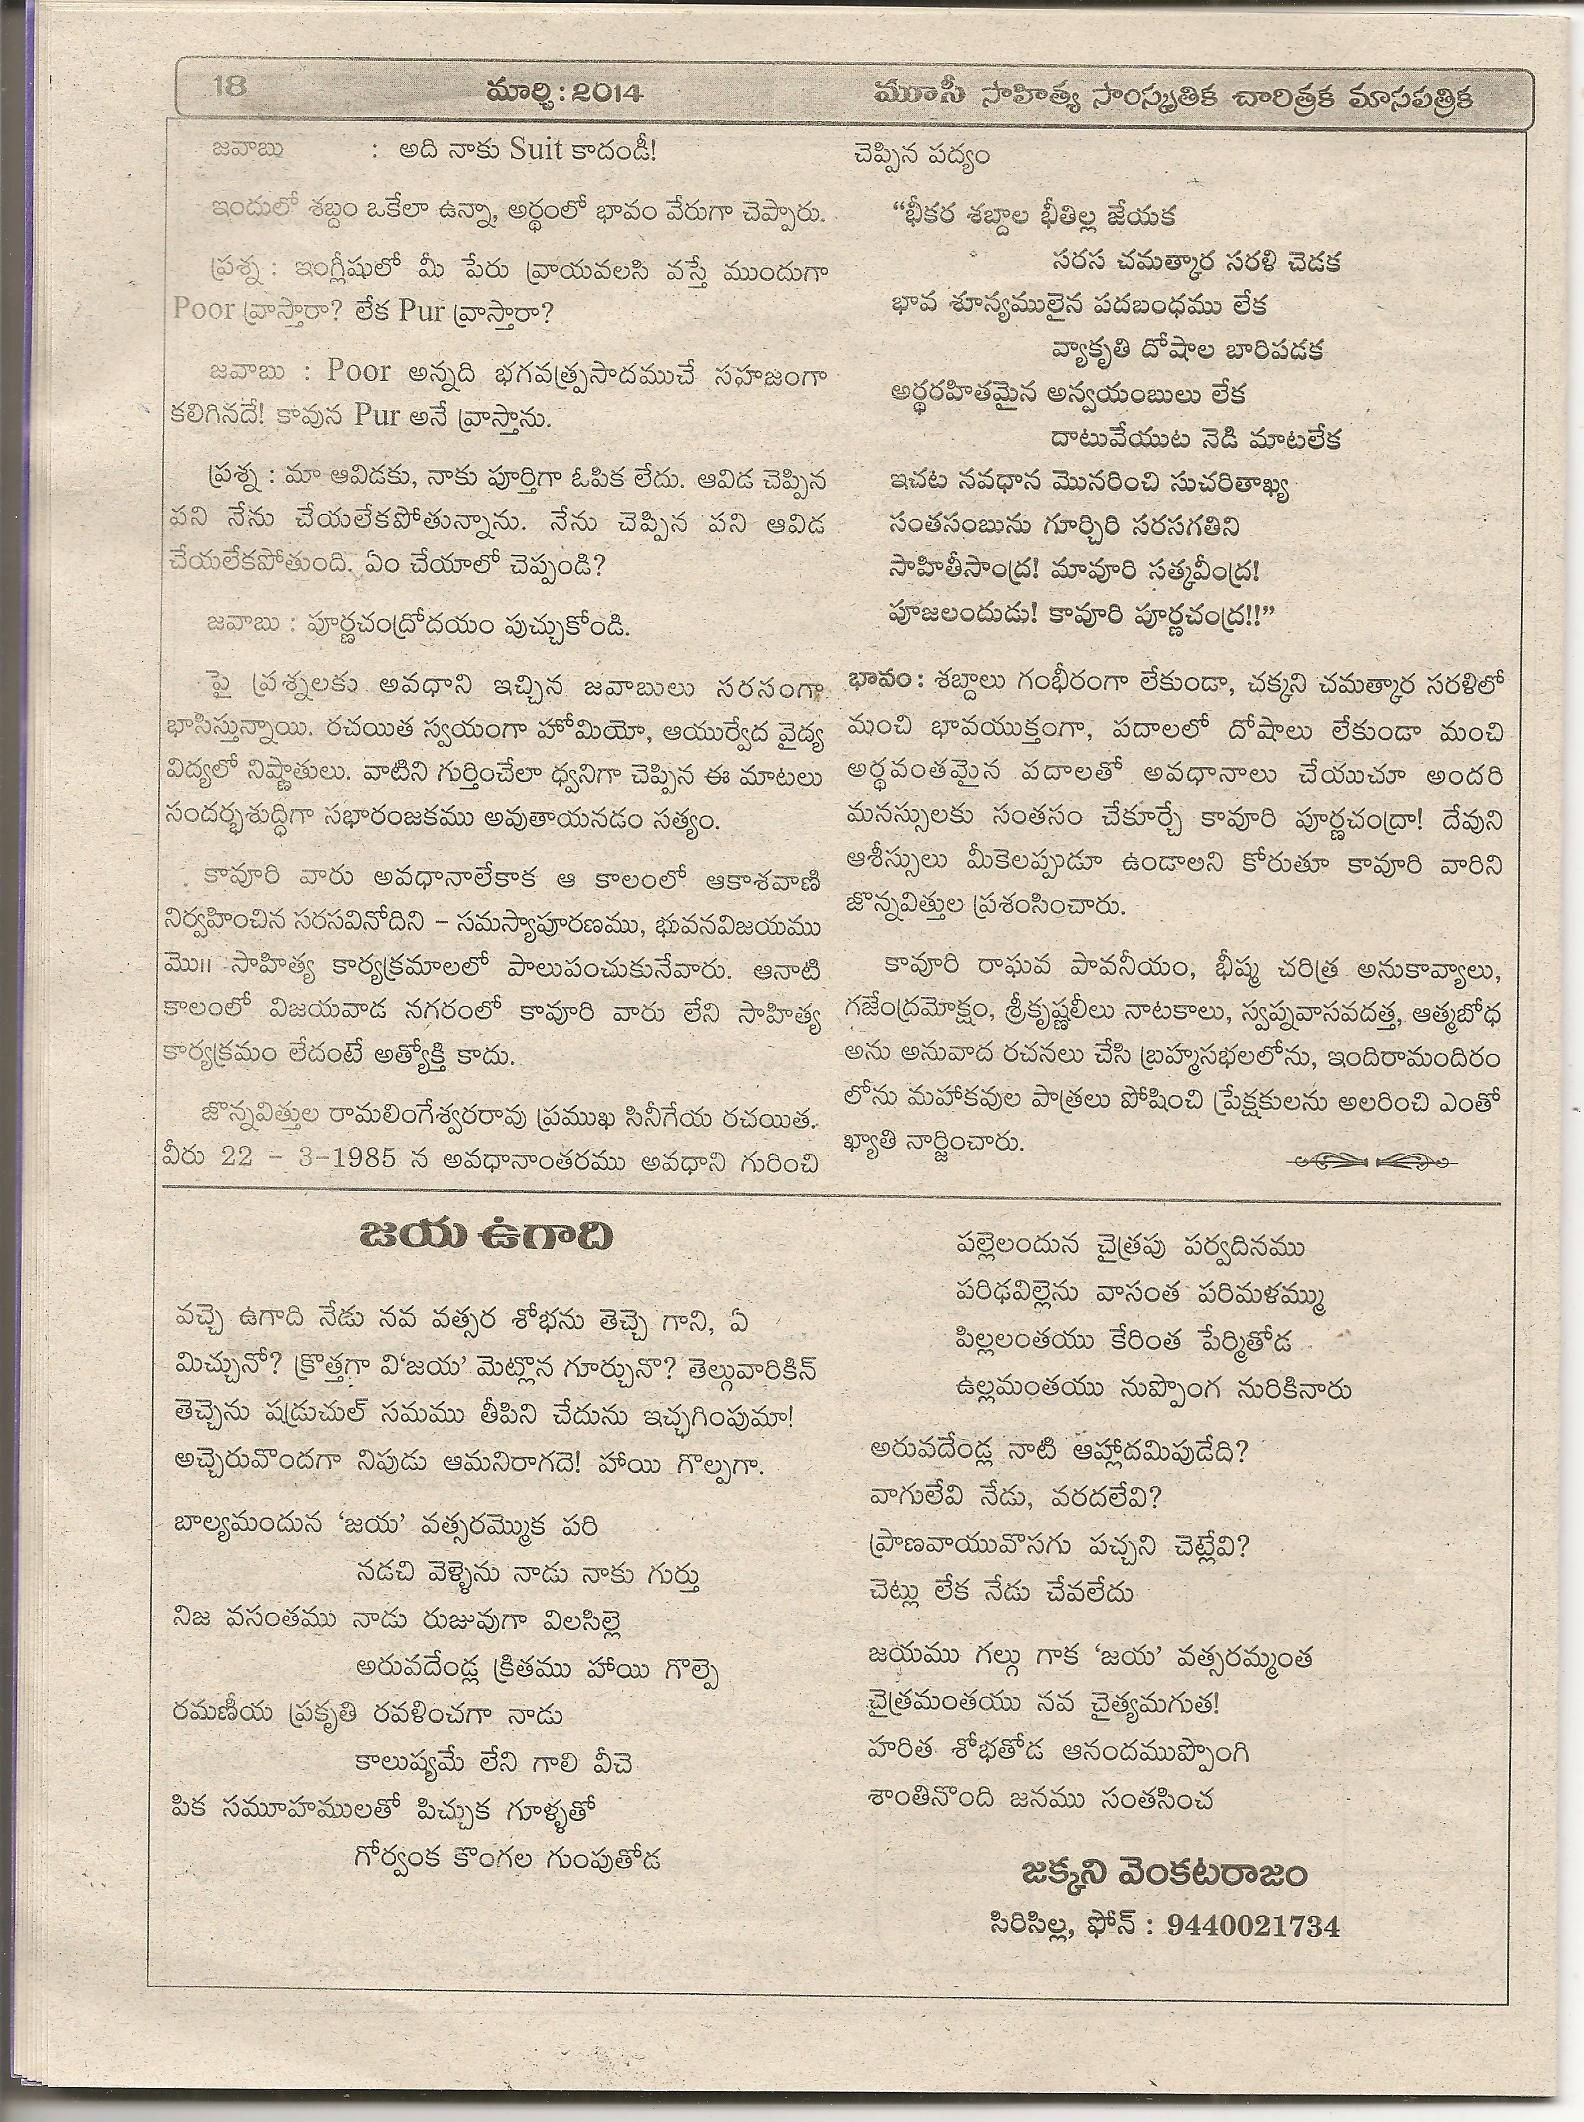 18 మార్చి : 2014 మూసీ సాహిత్య సాంస్కృతిక చారిత్రక మాసపత్రిక
జవాబు : అది నాకు Suit కాదండీ!
ఇందులో శబ్దం ఒకేలా ఉన్నా, అర్థంలో భావం వేరుగా చెప్పారు.
ప్రశ్న : ఇంగ్లీషులో మీ పేరు వ్రాయవలసి వస్తే ముందుగా
Poor వ్రాస్తారా? లేక Pur వ్రాస్తారా?
జవాబు : Poor అన్నది భగవత్ప్రసాదముచే సహజంగా
కలిగినదే! కావున Pur అనే వ్రాస్తాను.
ప్రశ్న : మా ఆవిడకు, నాకు పూర్తిగా ఓపిక లేదు. ఆవిడ చెప్పిన
పని నేను చేయలేకపోతున్నాను. నేను చెప్పిన పని ఆవిడ
చేయలేకపోతుంది. ఏం చేయాలో చెప్పండి?
జవాబు : పూర్ణచంద్రోదయం పుచ్చుకోండి.
పై ప్రశ్నలకు అవధాని ఇచ్చిన జవాబులు సరసంగా
భాసిస్తున్నాయి. రచయిత స్వయంగా హోమియో, ఆయుర్వేద వైద్య
విద్యలో నిష్ణాతులు. వాటిని గుర్తించేలా ధ్వనిగా చెప్పిన ఈ మాటలు
సందర్భశుద్ధిగా సభారంజకము అవుతాయనడం సత్యం.
కావూరి వారు అవధానాలేకాక ఆ కాలంలో ఆకాశవాణి
నిర్వహించిన సరసవినోదిని – సమస్యాపూరణము, భువనవిజయము
మొ॥ సాహిత్య కార్యక్రమాలలో పాలుపంచుకునేవారు. ఆనాటి
కాలంలో విజయవాడ నగరంలో కావూరి వారు లేని సాహిత్య
కార్యక్రమం లేదంటే అత్యోక్తి కాదు.
జొన్నవిత్తుల రామలింగేశ్వరరావు ప్రముఖ సినీగేయ రచయిత.
వీరు 22 – 3–1985 న అవధానాంతరము అవధాని గురించి
చెప్పిన పద్యం
“భీకర శబ్దాల భీతిల్ల జేయక
సరస చమత్కార సరళి చెడక
భావ శూన్యములైన పదబంధము లేక
వ్యాకృతి దోషాల బారిపడక
అర్థరహితమైన అన్వయంబులు లేక
దాటువేయుట నెడి మాటలేక
ఇచట నవధాన మొనరించి సుచరితాఖ్య
సంతసంబును గూర్చిరి సరసగతిని
సాహితీసాంద్ర! మావూరి సత్కవీంద్ర!
పూజలందుడు! కావూరి పూర్ణచంద్ర!!”
భావం : శబ్దాలు గంభీరంగా లేకుండా, చక్కని చమత్కార సరళిలో
మంచి భావయుక్తంగా, పదాలలో దోషాలు లేకుండా మంచి
అర్థవంతమైన పదాలతో అవధానాలు చేయుచూ అందరి
మనస్సులకు సంతసం చేకూర్చే కావూరి పూర్ణచంద్రా! దేవుని
ఆశీస్సులు మీకెలప్పుడూ ఉండాలని కోరుతూ కావూరి వారిని
జొన్నవిత్తుల ప్రశంసించారు.
కావూరి రాఘవ పావనీయం, భీష్మ చరిత్ర అనుకావ్యాలు,
గజేంద్రమోక్షం, శ్రీకృష్ణలీలు నాటకాలు, స్వప్నవాసవదత్త, ఆత్మబోధ
అను అనువాద రచనలు చేసి బ్రహ్మసభలలోను, ఇందిరామందిరం
లోను మహాకవుల పాత్రలు పోషించి ప్రేక్షకులను అలరించి ఎంతో
ఖ్యాతి నార్జించారు.
జయ ఉగాది
వచ్చె ఉగాది నేడు నవ వత్సర శోభను తెచ్చె గాని, ఏ
మిచ్చునో? క్రొత్తగా వి‘జయ’ మెట్లొన గూర్చునొ? తెల్గువారికిన్
తెచ్చెను షడ్రుచుల్ సమము తీపిని చేదును ఇచ్ఛగింపుమా!
అచ్చెరువొందగా నిపుడు ఆమనిరాగదె! హాయి గొల్పగా.
బాల్యమందున ‘జయ’ వత్సరమ్మొక పరి
నడచి వెళ్ళెను నాడు నాకు గుర్తు
నిజ వసంతము నాడు రుజువుగా విలసిల్లె
అరువదేండ్ల క్రితము హాయి గొల్పె
రమణీయ ప్రకృతి రవళించగా నాడు
కాలుష్యమే లేని గాలి వీచె
పిక సమూహములతో పిచ్చుక గూళ్ళతో
గోర్వంక కొంగల గుంపుతోడ
పల్లెలందున చైత్రపు పర్వదినము
పరిఢవిల్లెను వాసంత పరిమళమ్ము
పిల్లలంతయు కేరింత పేర్మితోడ
ఉల్లమంతయు నుప్పొంగ నురికినారు
అరువదేండ్ల నాటి ఆహ్లాదమిపుడేది?
వాగులేవి నేడు, వరదలేవి?
ప్రాణవాయువొసగు పచ్చని చెట్లేవి?
చెట్లు లేక నేడు చేవలేదు
జయము గల్గు గాక ‘జయ’ వత్సరమ్మంత
చైత్రమంతయు నవ చైత్యమగుత!
హరిత శోభతోడ ఆనందముప్పొంగి
శాంతినొంది జనము సంతసించ
జక్కని వెంకటరాజం
సిరిసిల్ల, ఫోన్ : 9440021734